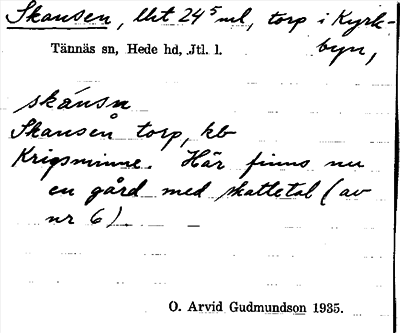 Skansen, llrt 24⁵ ml, torp i Kyrk-
byn,
Tännäs sn, Hede hd, Jtl. l.
skánsn
Skansen torp, kb
Krigsminne. Här finns nu
en gård med skattetal (av
nr 6).
O. Arvid Gudmundson 1935.